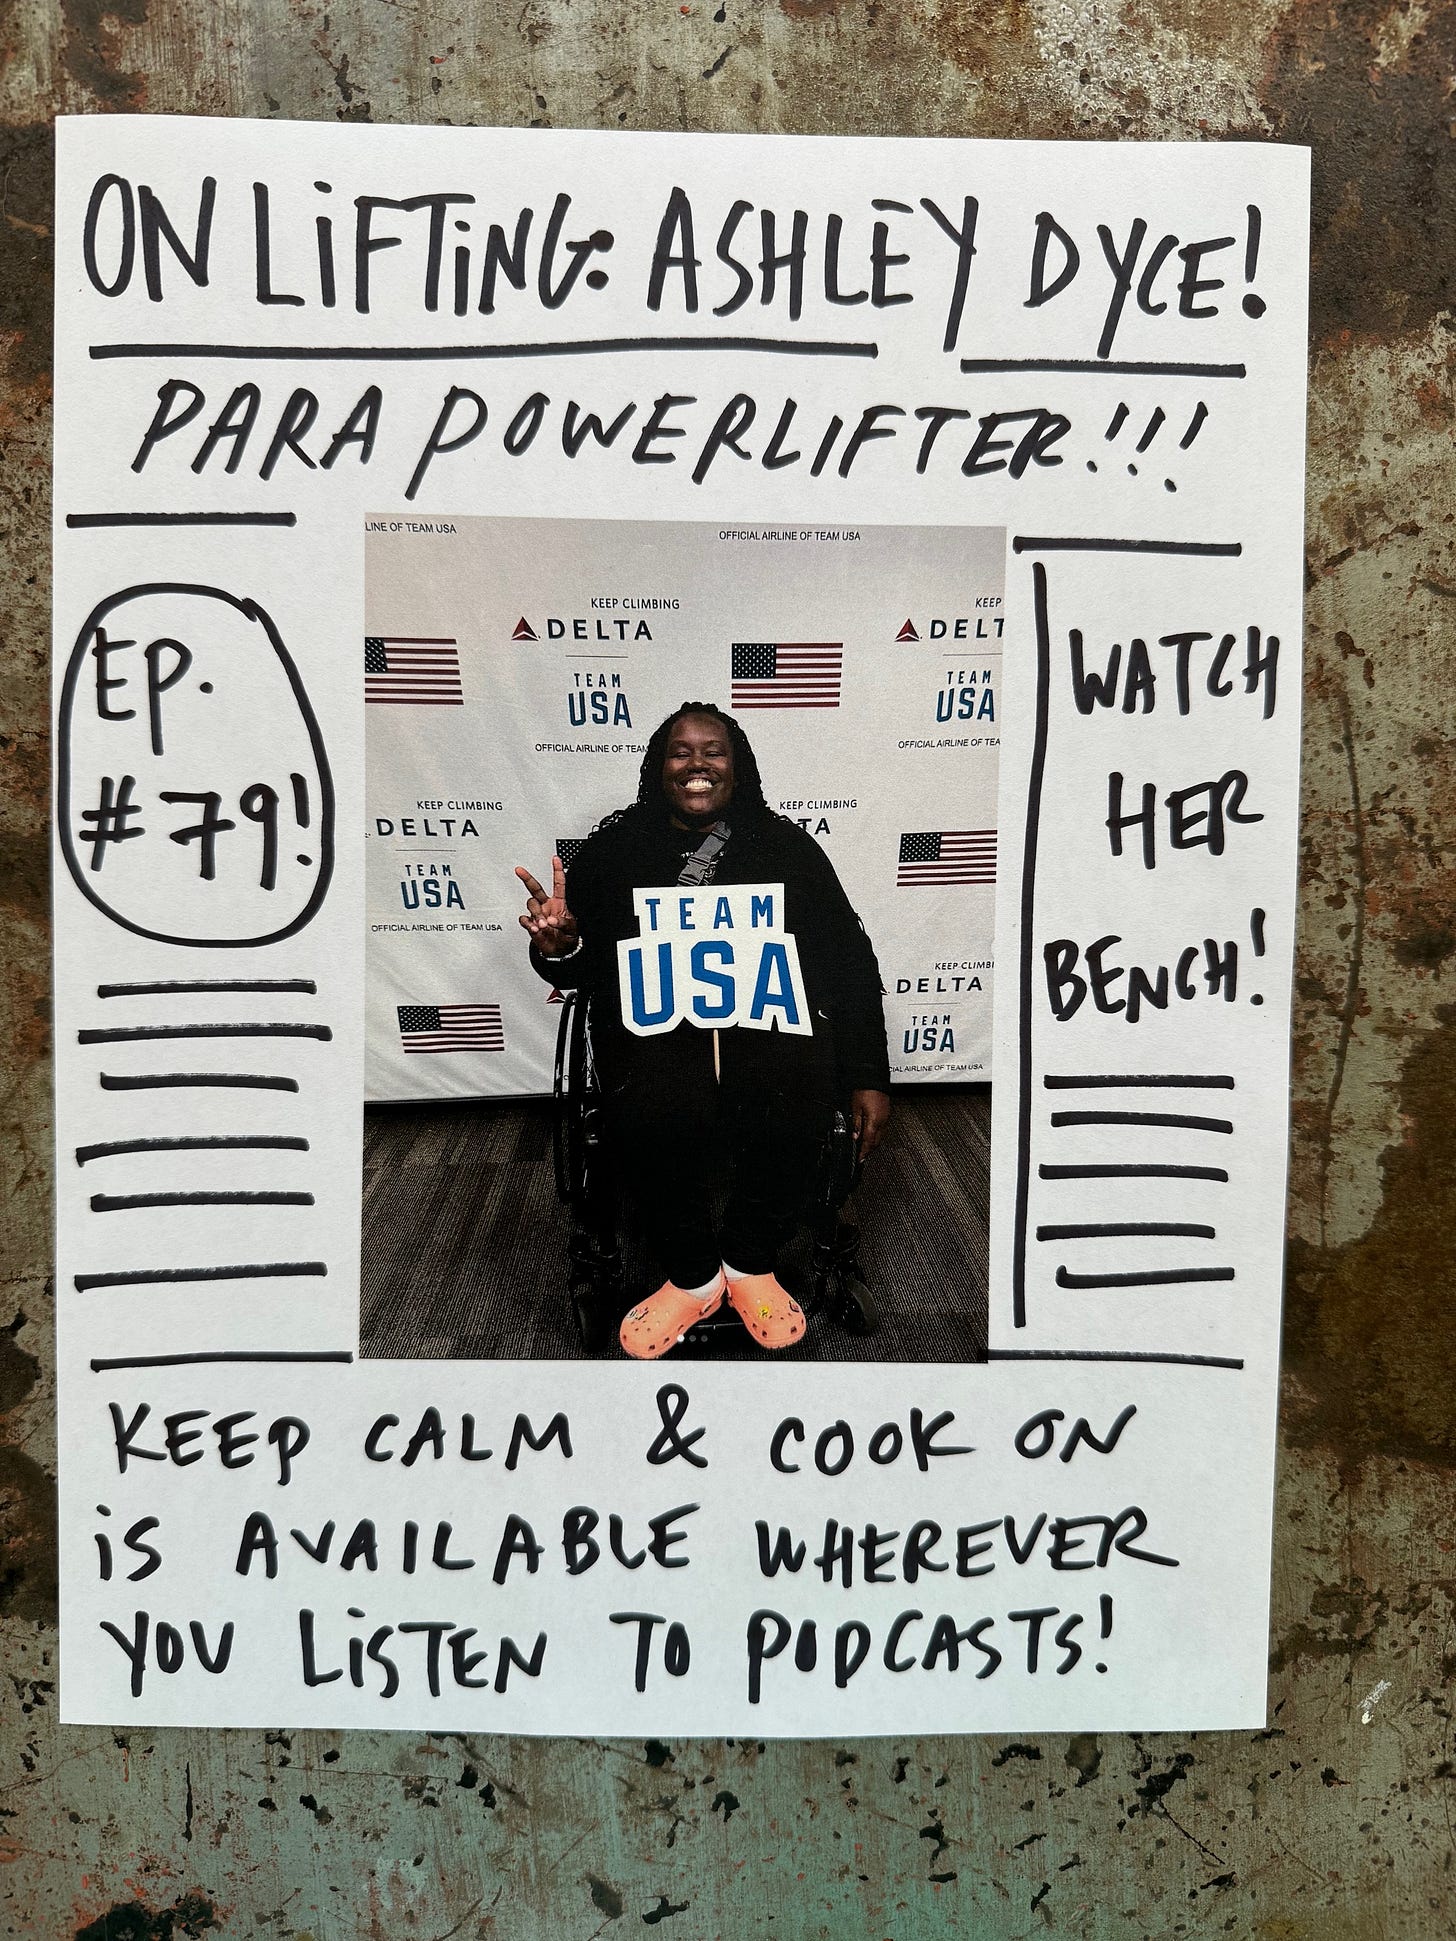 ON LiFTiNG: ASHLEY DYCE!
PARA POWERLIFTER!!!
EP.
#79!
WATCH
HER
BENCH!
LINE OF TEAM USA
OFFICIAL AIRLINE OF TEAM USA
KEEP CLIMBING
DELTA
TEAM
USA
OFFICIAL AIRLINE OF TEAM
KEEP
DELT
TEAM
USA
OFFICIAL AIRLINE OF TEA
KEEP CLIMBING
DELTA
TEAM
USA
OFFICIAL AIRLINE OF TEAM USA
KEEP CLIMBING
TA
TEAM
USA
KEEP CLIMBI
DELTA
TEAM
USA
CIAL AIRLINE OF TEAM USA
KEEP CALM & COOK ON
iS AVAILABLE WHEREVER
YOU LiSTEN TO PODCASTS!